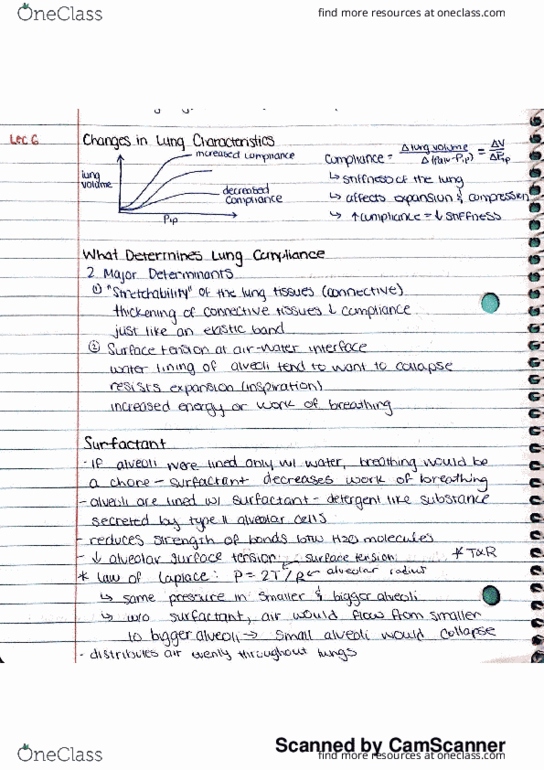 OneClass
find more resources at oneclass.com
Lec 6
Changes in Lung Characteristics
increased compliance
lung volume
decreased compliance
Pip
Compliance = Δ lung volume / Δ (Palv - Pip) = ΔV / ΔPip
↳ stiffness of the lung
↳ affects expansion & compression
↳ ↑ compliance = ↓ stiffness
What Determines Lung Compliance
2 Major Determinants
① "Stretchability" of the lung tissues (connective)
thickening of connective tissues ↓ compliance
just like an elastic band
② Surface tension at air-water interface
water lining of alveoli tend to want to collapse
resists expansion (inspiration)
increased energy or work of breathing
Surfactant
- if alveoli were lined only w/ water, breathing would be
a chore - surfactant decreases work of breathing
- alveoli are lined w/ surfactant - detergent like substance
secreted by type II alveolar cells
- reduces strength of bonds btw H2O molecules
- ↓ alveolar surface tension surface tension * T&R
* Law of Laplace: P = 2T/R ← alveolar radius
↳ same pressure in smaller & bigger alveoli
↳ w/o surfactant, air would flow from smaller
to bigger alveoli → small alveoli would collapse
- distributes air evenly throughout lungs
Scanned by CamScanner
OneClass
find more resources at oneclass.com